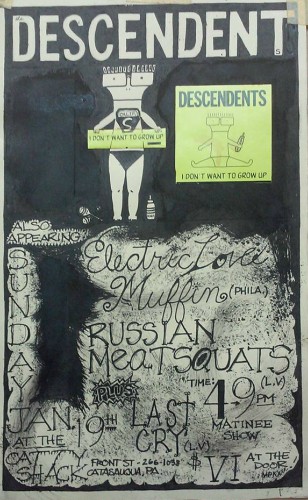 the
DESCENDENT
S
DESCENDENTS
I DON'T WANT TO GROW UP
I DON'T WANT TO GROW UP
ALSO
APPEARING
SUNDAY
Electric Love
Muffin (PHILA.)
RUSSIAN
MEATSQUATS
PLUS
LAST
CRY (L.V)
TIME: 4-9 PM (L.V)
MATINEE
SHOW
JAN. 19TH
AT THE
SHACK
FRONT ST - 266-1093
CATASAUQUA, PA.
$ VI AT THE
DOOR